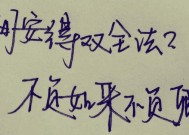 安得双全法?
不负如来不负卿